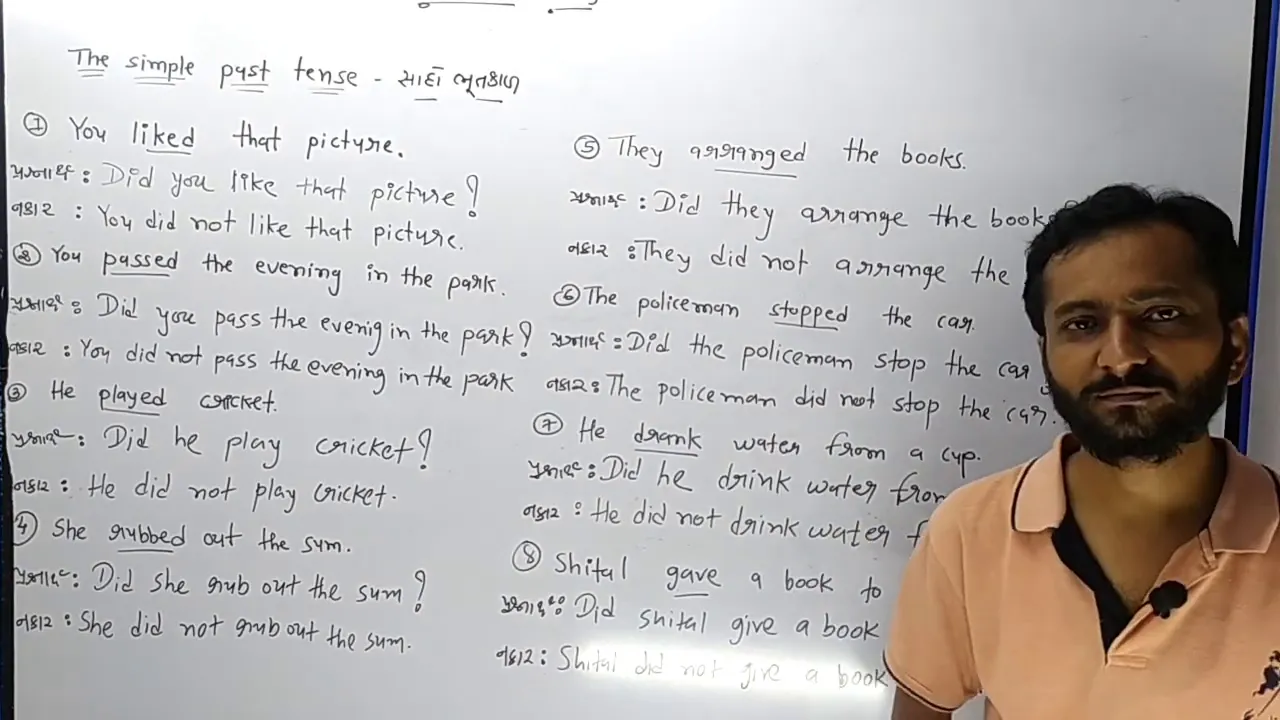 The simple past tense - સાદો ભૂતકાળ
① You liked that picture.
પ્રશ્નાર્થ : Did you like that picture?
નકાર : You did not like that picture.
② You passed the evening in the park.
પ્રશ્નાર્થ : Did you pass the evenig in the park?
નકાર : You did not pass the evening in the park
③ He played cricket.
પ્રશ્નાર્થ : Did he play cricket?
નકાર : He did not play cricket.
④ She rubbed out the sum.
પ્રશ્નાર્થ : Did she rub out the sum?
નકાર : She did not rub out the sum.
⑤ They arranged the books.
પ્રશ્નાર્થ : Did they arrange the books?
નકાર : They did not arrange the
⑥ The policeman stopped the car.
પ્રશ્નાર્થ : Did the policeman stop the car
નકાર : The policeman did not stop the car.
⑦ He drank water from a cup.
પ્રશ્નાર્થ : Did he drink water from
નકાર : He did not drink water
⑧ Shital gave a book to
પ્રશ્નાર્થ : Did shital give a book
નકાર : Shital did not give a book